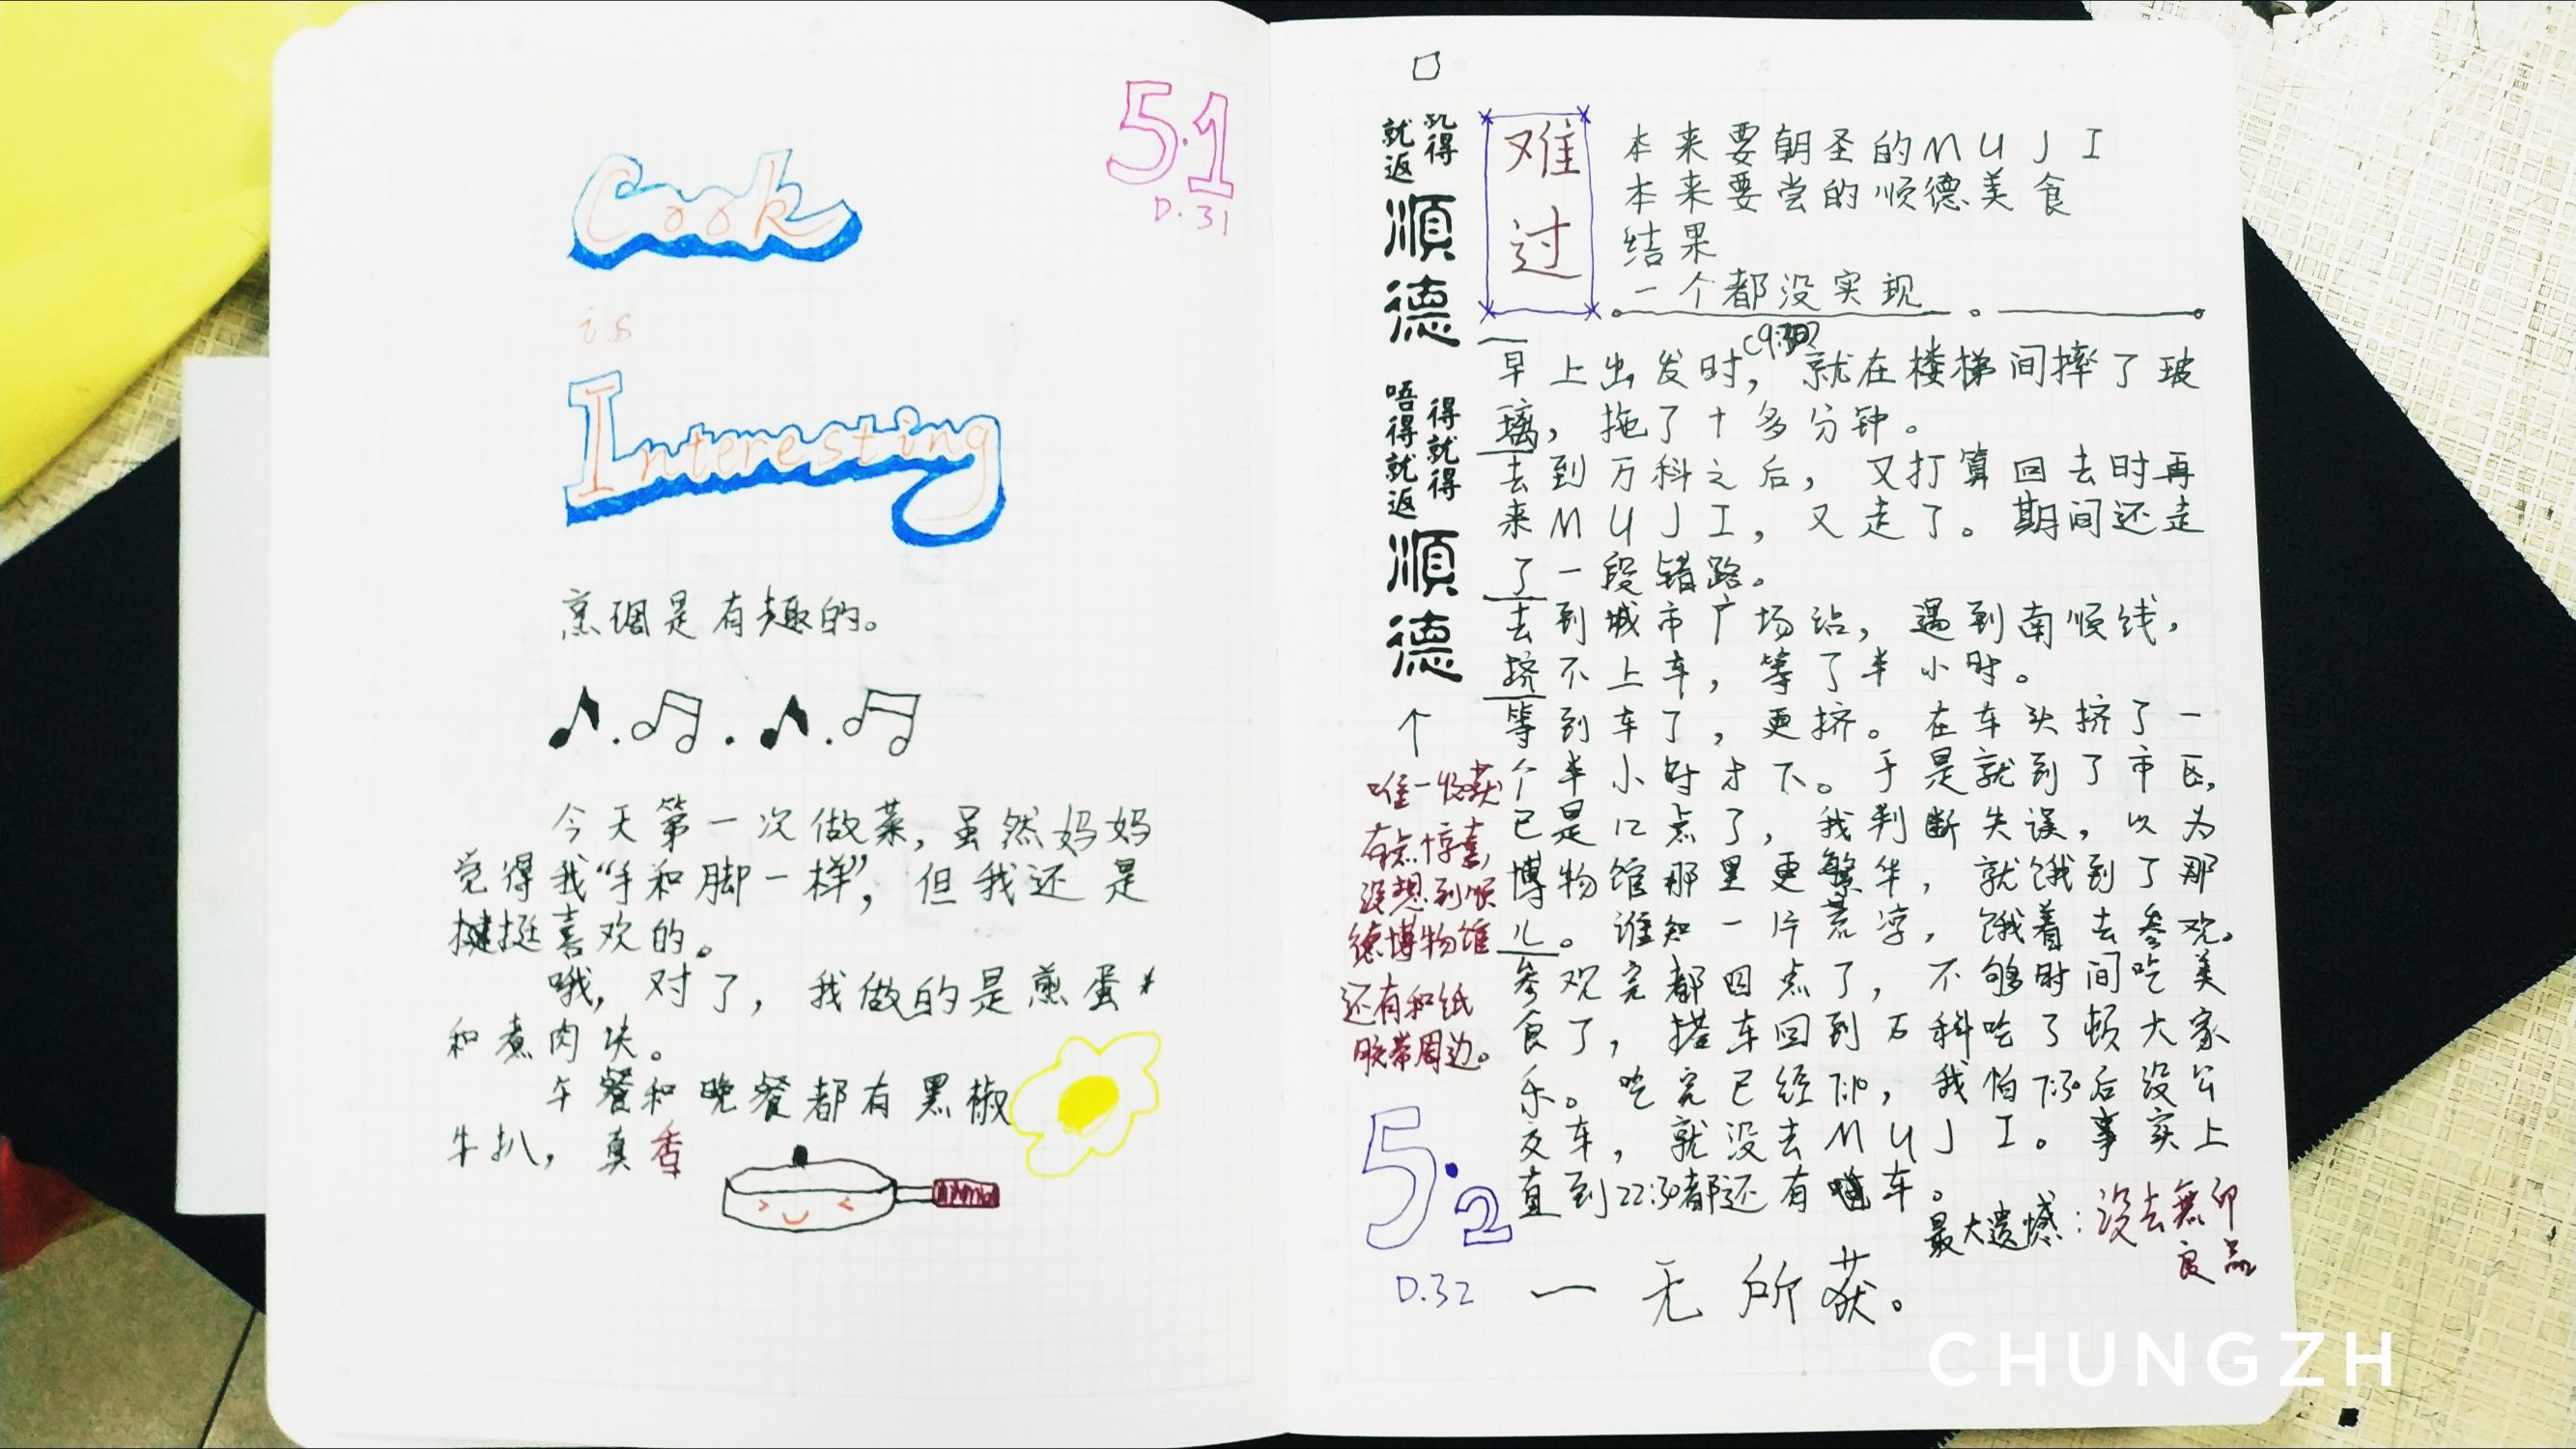 5.1
D.31
Cook
is
Interesting
烹调是有趣的。
今天第一次做菜,虽然妈妈
觉得我“手和脚一样”,但我还是
挺喜欢的。
哦,对了,我做的是煎蛋
和煮肉块。
午餐和晚餐都有黑椒
牛扒,真香
就返
得
順德
唔得就返
得就得
順德
↑
唯一收获
有点惊喜,
没想到顺
德博物馆
还有和纸
胶带周边。
5.2
D.32
难过
本来要朝圣的MUJI
本来要尝的顺德美食
结果
一个都没实现
早上出发时,就在楼梯间摔了玻
璃,拖了十多分钟。
去到万科之后,又打算回去时再
来MUJI,又走了。期间还走
了一段错路。
去到城市广场站,遇到南顺线,
挤不上车,等了半小时。
等到车了,更挤。在车头挤了一
个半小时才下。于是就到了市区,
已是12点了,我判断失误,以为
博物馆那里更繁华,就饿到了那
儿。谁知一片荒凉,饿着去参观。
参观完都四点了,不够时间吃美
食了,搭车回到万科吃了顿大家
乐。吃完已经7:10,我怕7:30后没公
交车,就没去MUJI。事实上
直到22:30都还有车。
最大遗憾:没去無印
良品
一无所获。
CHUNGZH